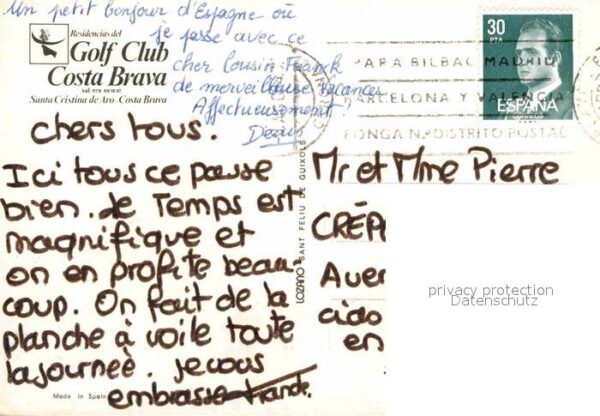 Un petit bonjour d'Espagne où
je passe avec ce
cher cousin Franck
de merveilleuse vacances.
Affectueusement
Residencias del
Golf Club
Costa Brava
Santa Cristina de Aro - Costa Brava
30
PTA
ESPAÑA
PARA BILBAO MADRID
BARCELONA Y VALENCIA
PONGA N.º DISTRITO POSTAL
chers tous.
Ici tous ce passe
bien. Le Temps est
magnifique et
on en profite beau-
coup. On fait de la
planche à voile toute
la journeé. Je vous
embrasse
Made in Spain
LOZANO SANT FELIU DE GUIXOLS
Mr et Mme Pierre
CRÉP
Aver
cids
en
privacy protection
Datenschutz